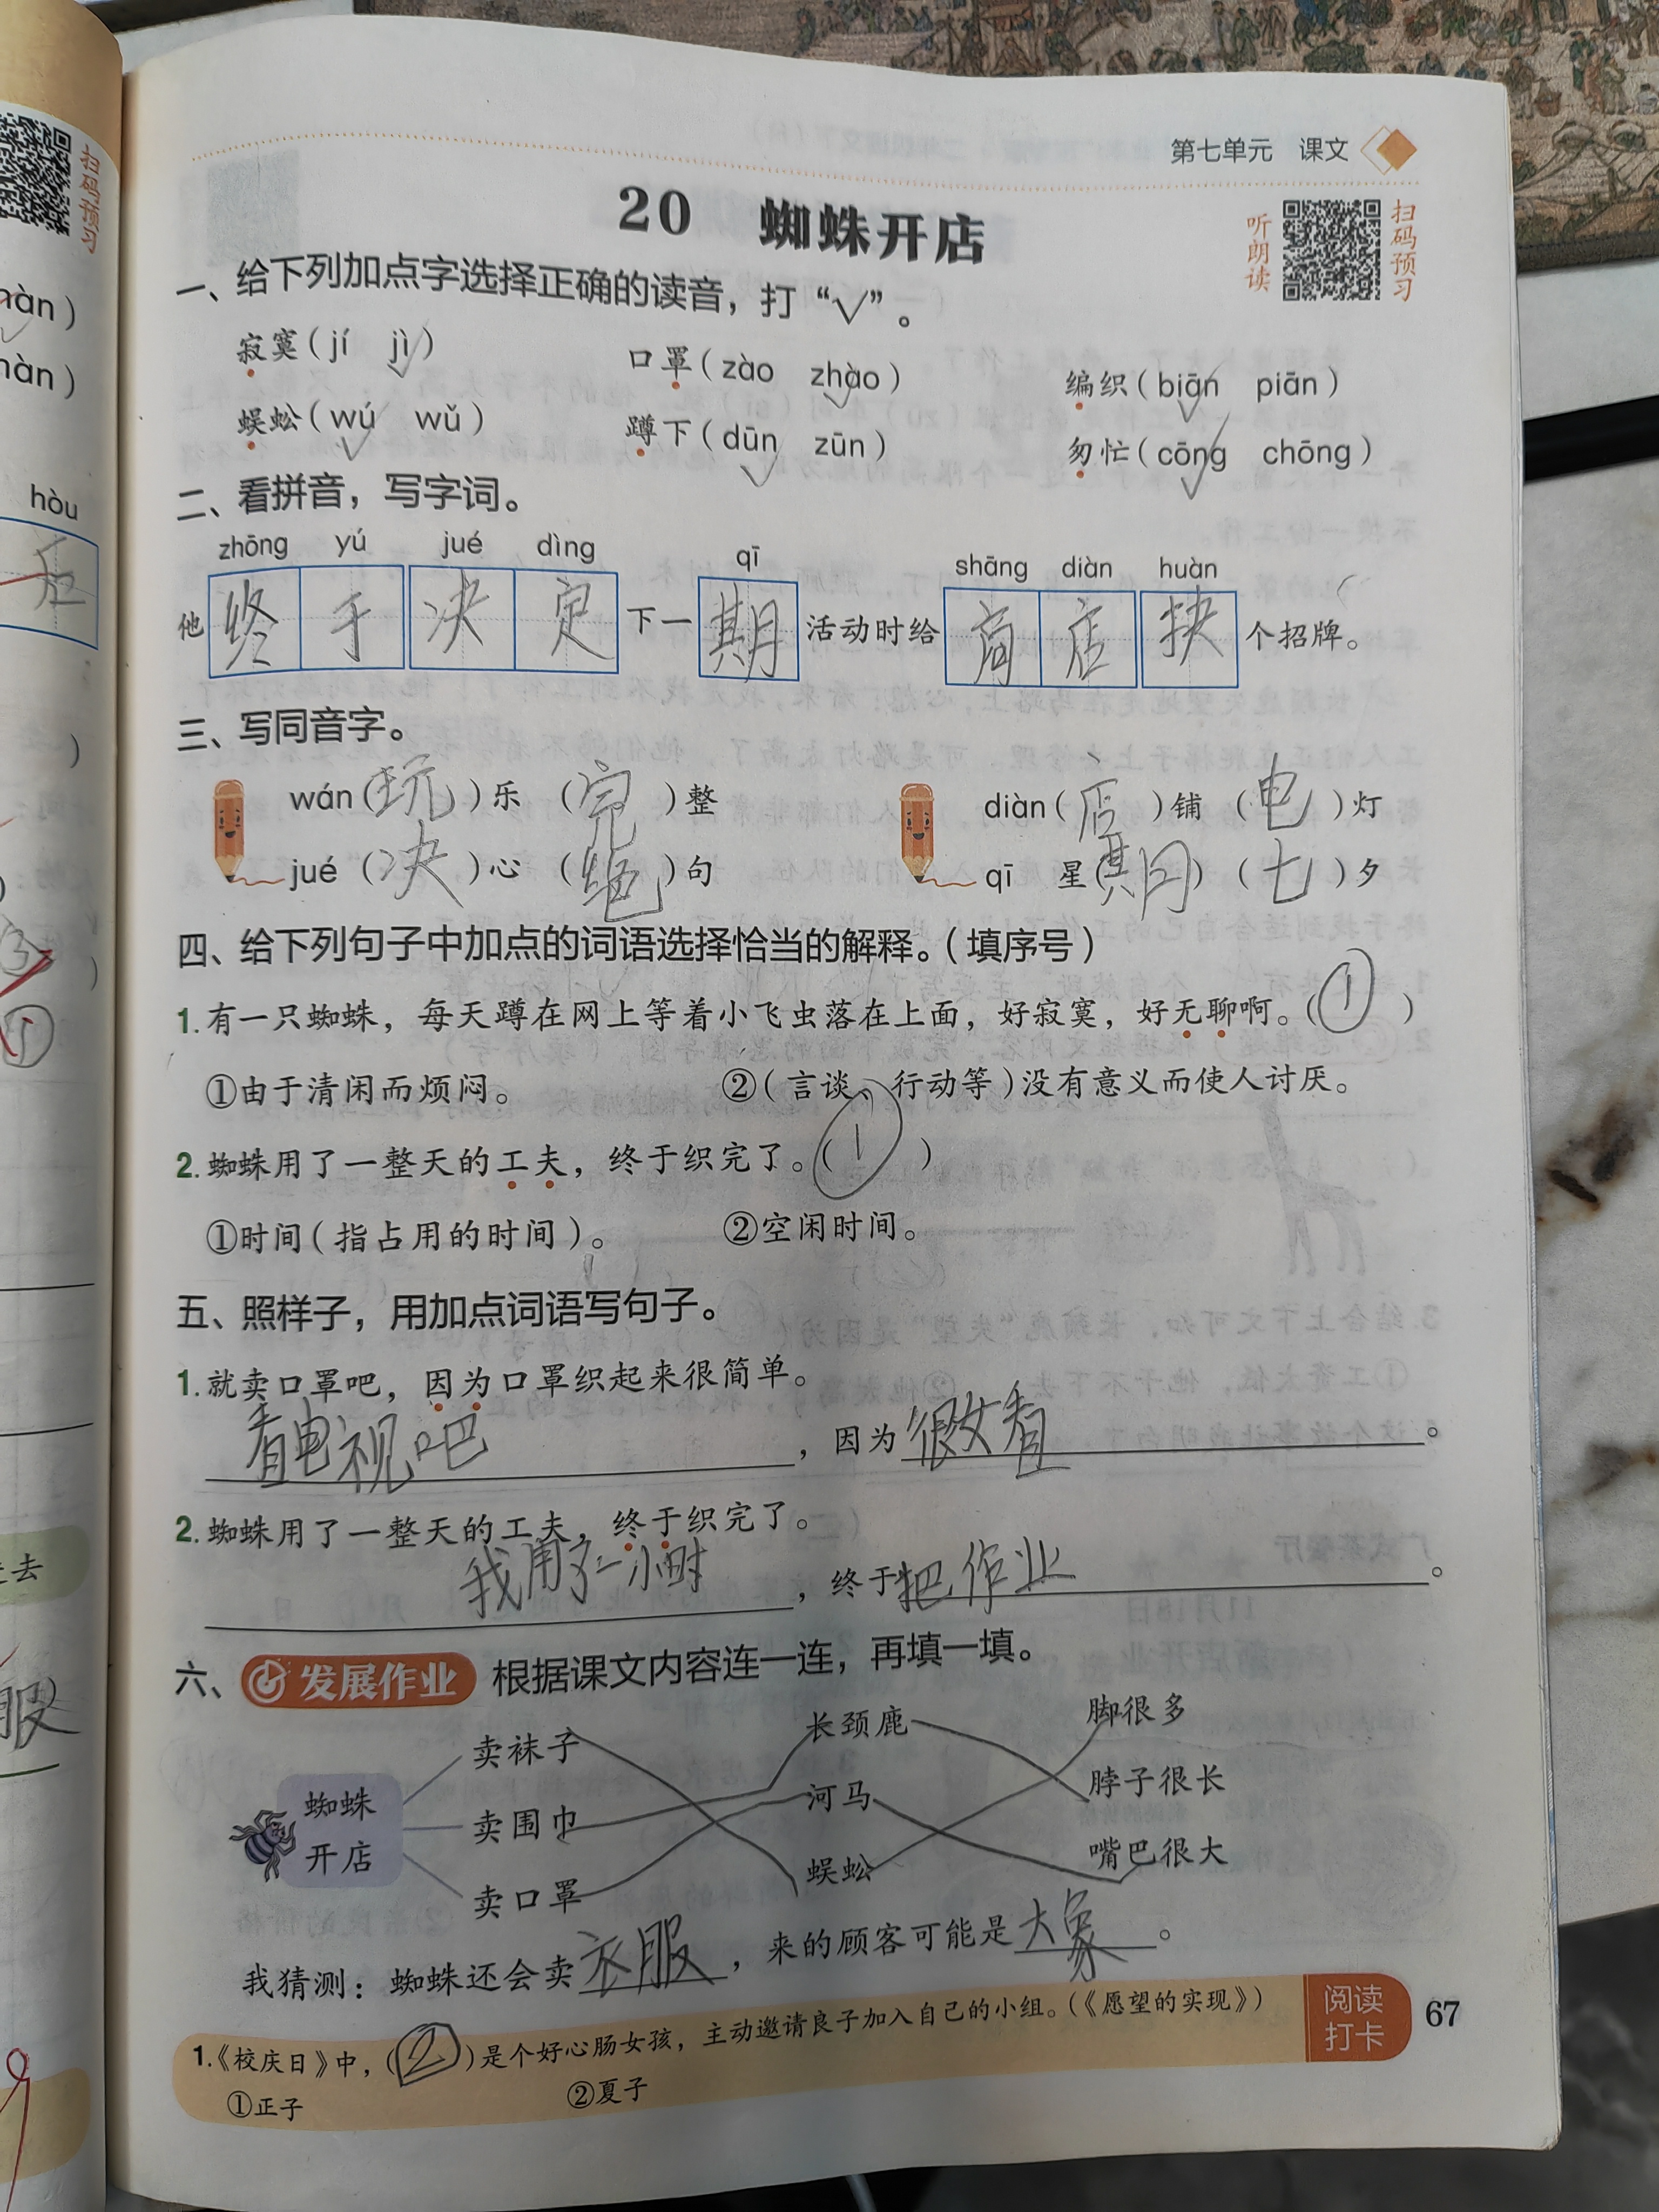 第七单元 课文
20 蜘蛛开店
听朗读
扫码预习
扫码预习
一、给下列加点字选择正确的读音，打“√”。
寂寞(jí jì√) 口罩(zào zhào√) 编织(biān√ piān)
蜈蚣(wú√ wǔ) 蹲下(dūn√ zūn) 匆忙(cōng√ chōng)
二、看拼音，写字词。
zhōng yú jué dìng qī shāng diàn huàn
他终于决定下一期活动时给商店换个招牌。
三、写同音字。
wán(玩)乐 (完)整 diàn(店)铺 (电)灯
jué(决)心 (绝)句 qī 星(期) (七)夕
四、给下列句子中加点的词语选择恰当的解释。(填序号)
1.有一只蜘蛛，每天蹲在网上等着小飞虫落在上面，好寂寞，好无聊啊。(①)
①由于清闲而烦闷。 ②(言谈、行动等)没有意义而使人讨厌。
2.蜘蛛用了一整天的工夫，终于织完了。(①)
①时间(指占用的时间)。 ②空闲时间。
五、照样子，用加点词语写句子。
1.就卖口罩吧，因为口罩织起来很简单。
看电视吧，因为很好看。
2.蜘蛛用了一整天的工夫，终于织完了。
我用了一小时，终于把作业。
六、发展作业 根据课文内容连一连，再填一填。
卖袜子 长颈鹿 脚很多
蜘蛛开店 卖围巾 河马 脖子很长
卖口罩 蜈蚣 嘴巴很大
我猜测：蜘蛛还会卖衣服，来的顾客可能是大象。
1.《校庆日》中，(②)是个好心肠女孩，主动邀请良子加入自己的小组。(《愿望的实现》)
①正子 ②夏子
阅读打卡
67
hòu